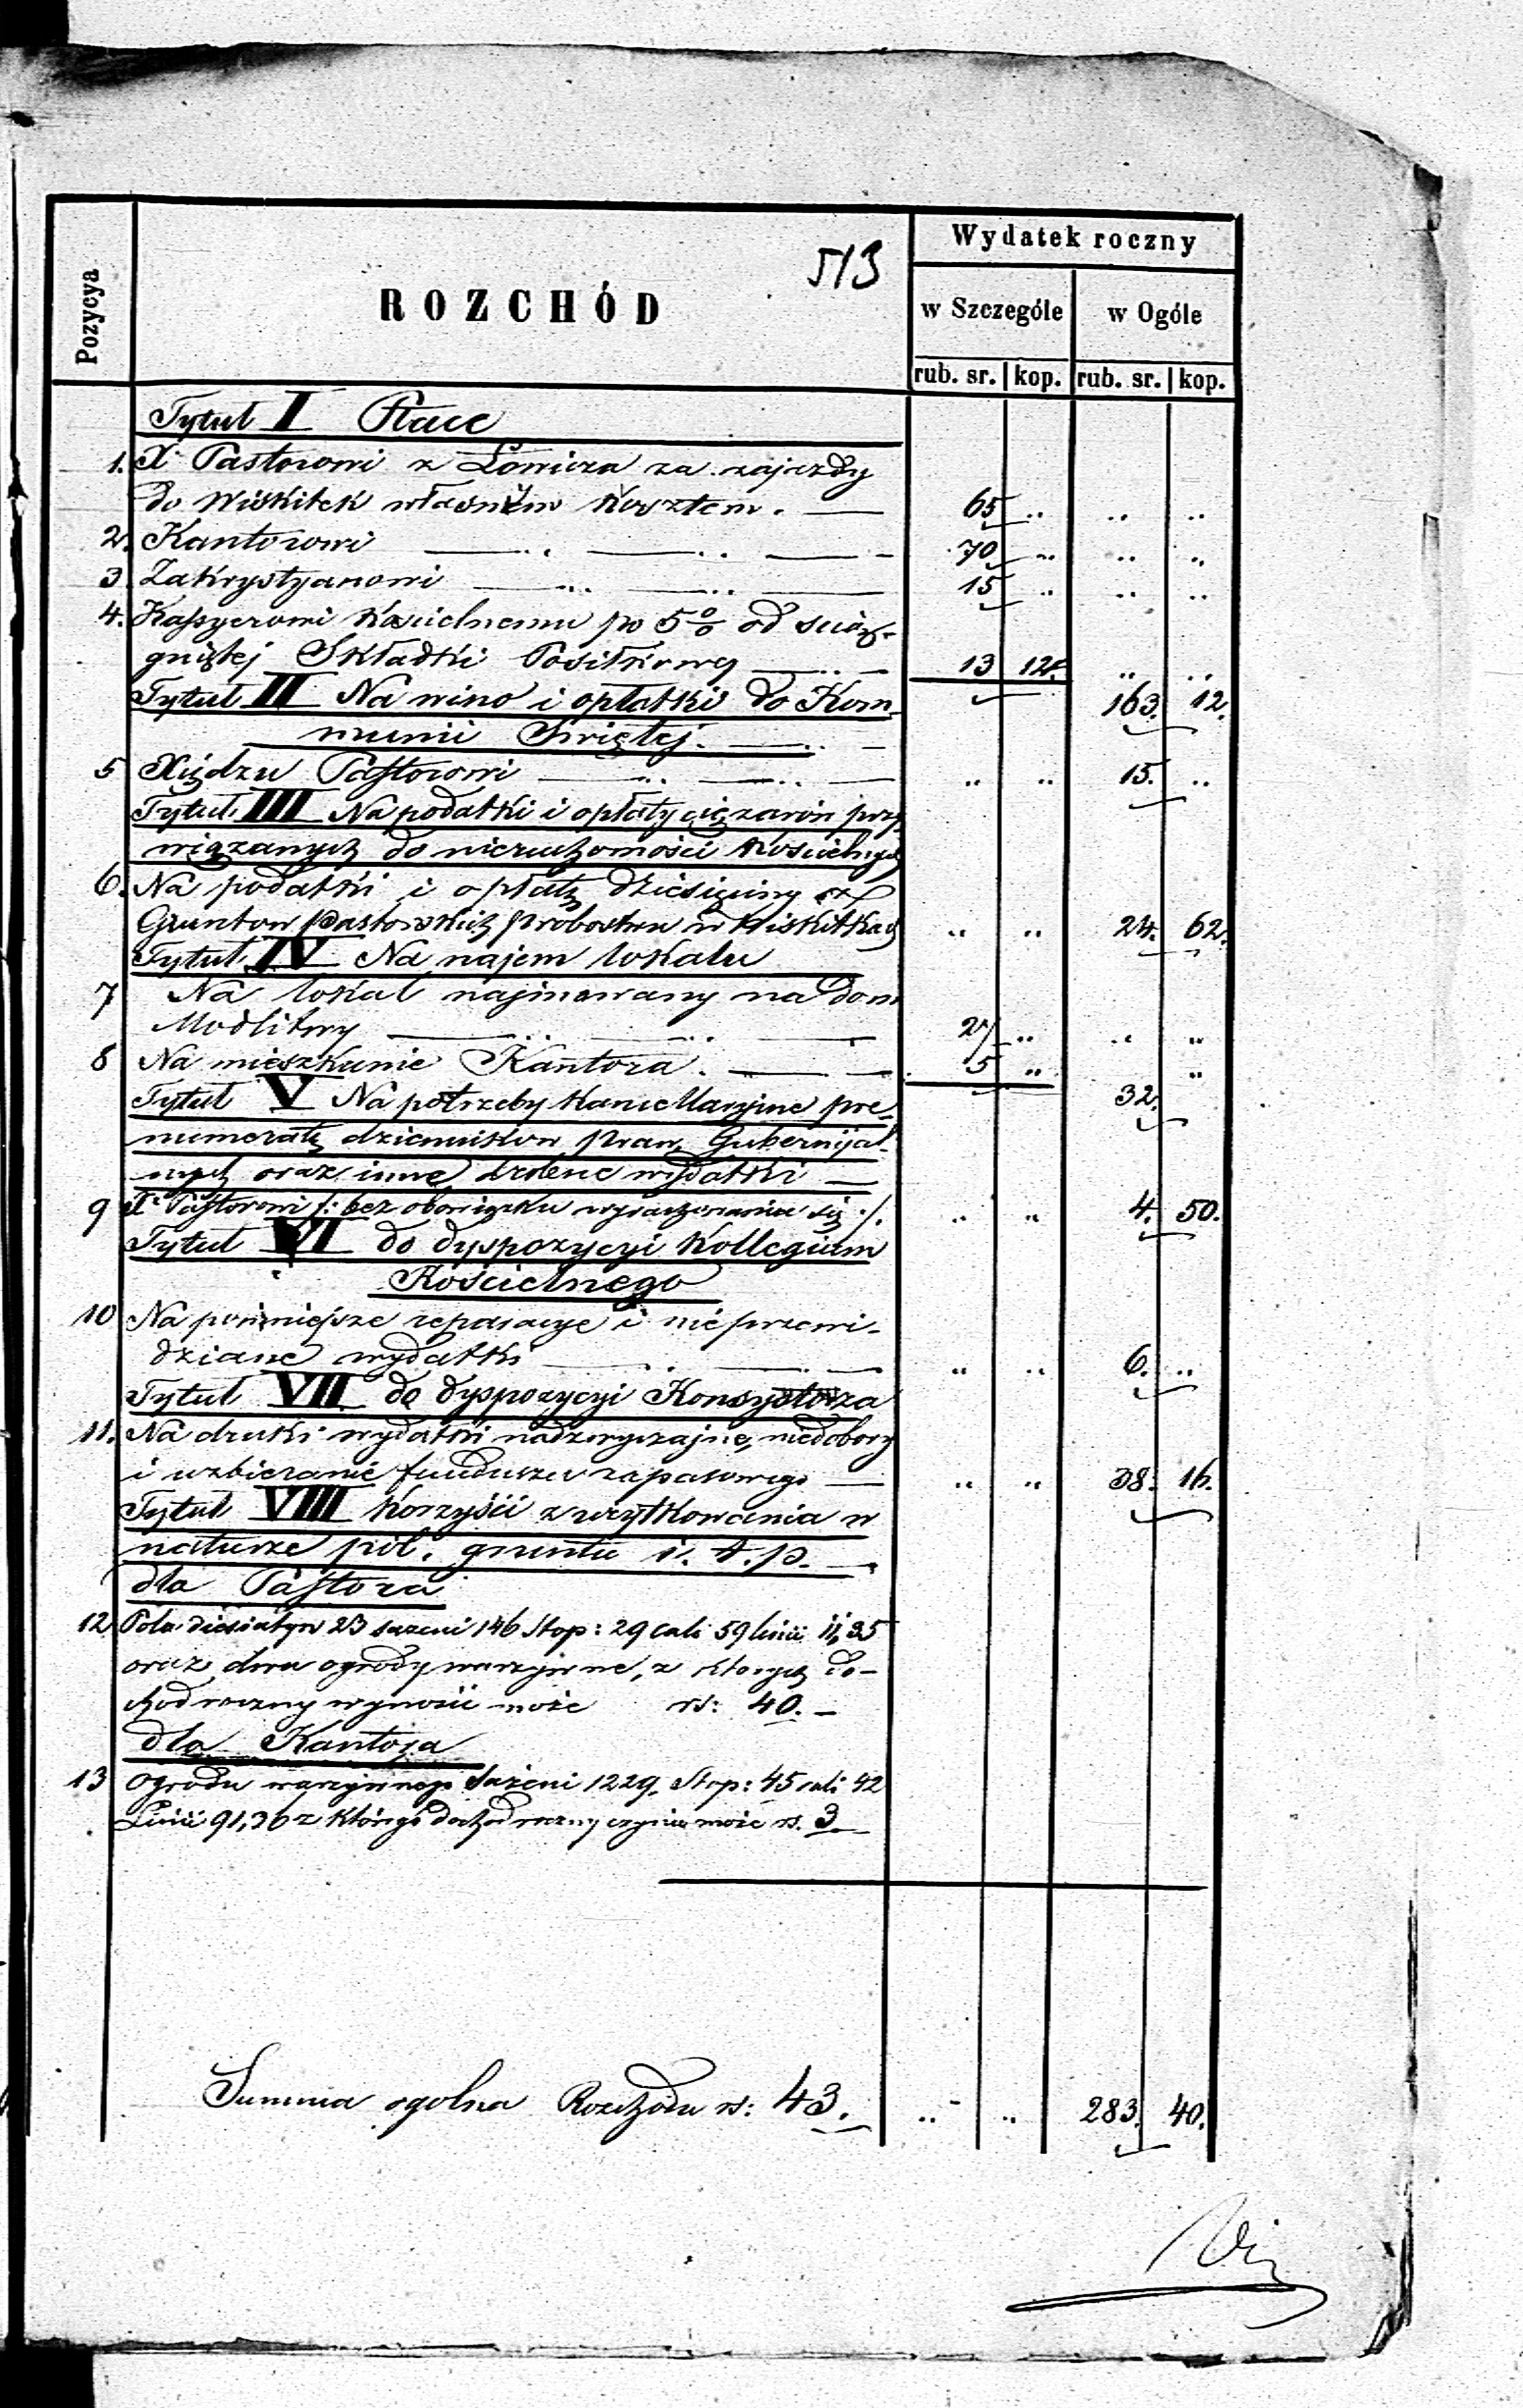 513
Pozycya
ROZCHÓD
Wydatek roczny
w Szczególe w Ogóle
rub. sr. kop. rub. sr. kop.
Tytuł I Płace
1. X Pastorowi z Łowicza za zajazdy
do Wiskitek własnym kosztem. 65 .. .. ..
2. Kantorowi 70 .. .. ..
3. Zakrystyanowi 15 .. .. ..
4. Kassyerowi Kościelnemu po 5% od sciąg-
gniętej Składki Posiłkowej 13 12. .. ..
Tytuł II Na wino i opłatki do Kom- 163. 12.
munii Świętej.
5 Xiędzu Pastorowi .. .. 15. ..
Tytuł III Na podatki i opłaty ciężarów przy
wiązanych do nieruchomości Kościelnych
6. Na podatki i opłatę dziesięciny z
Gruntow Pastorskich Probostwa w Wiskitkach .. .. 24. 62.
Tytuł IV Na najem lokalu
7 Na lokal najmowany na dom
Modlitwy 27 .. .. ..
8 Na mieszkanie Kantora. 5 .. ..
Tytuł V Na potrzeby Kancellaryjne pre- 32.
numeratę dziennikow praw, Gubernijal-
nych oraz inne drobne wydatki
9 X. Pastorowi /: bez obowiązku wyrachowania się :/. .. .. 4. 50.
Tytuł VI do dyspozycyi Kollegium
Kościelnego
10 Na pomniejsze reparacye i nieprzewi-
dziane wydatki .. .. 6. ..
Tytuł VII do dyspozycyi Konsystorza
11. Na druki wydatki nadzwyczajne, niedobory
i uzbieranie funduszu zapasowego .. .. 38. 16.
Tytuł VIII Korzyści z użytkowania w
naturze pól, gruntu i. t. p.
dla Pastora
12 Pola diesiatyn 23 sazeni 146 Stop: 29 cali 59 linii 11,35
oraz dwa ogrody warzywne, z ktorych do-
chod roczny wynosić może rs: 40. –
dla Kantora
13 Ogrodu warzywnego Sażeni 1229. Stop: 45 cali 42
Linii 91,36 z którego dochod roczny czynić może rs. 3
Summa ogolna Rozchodu rs: 43. .. .. 283. 40.